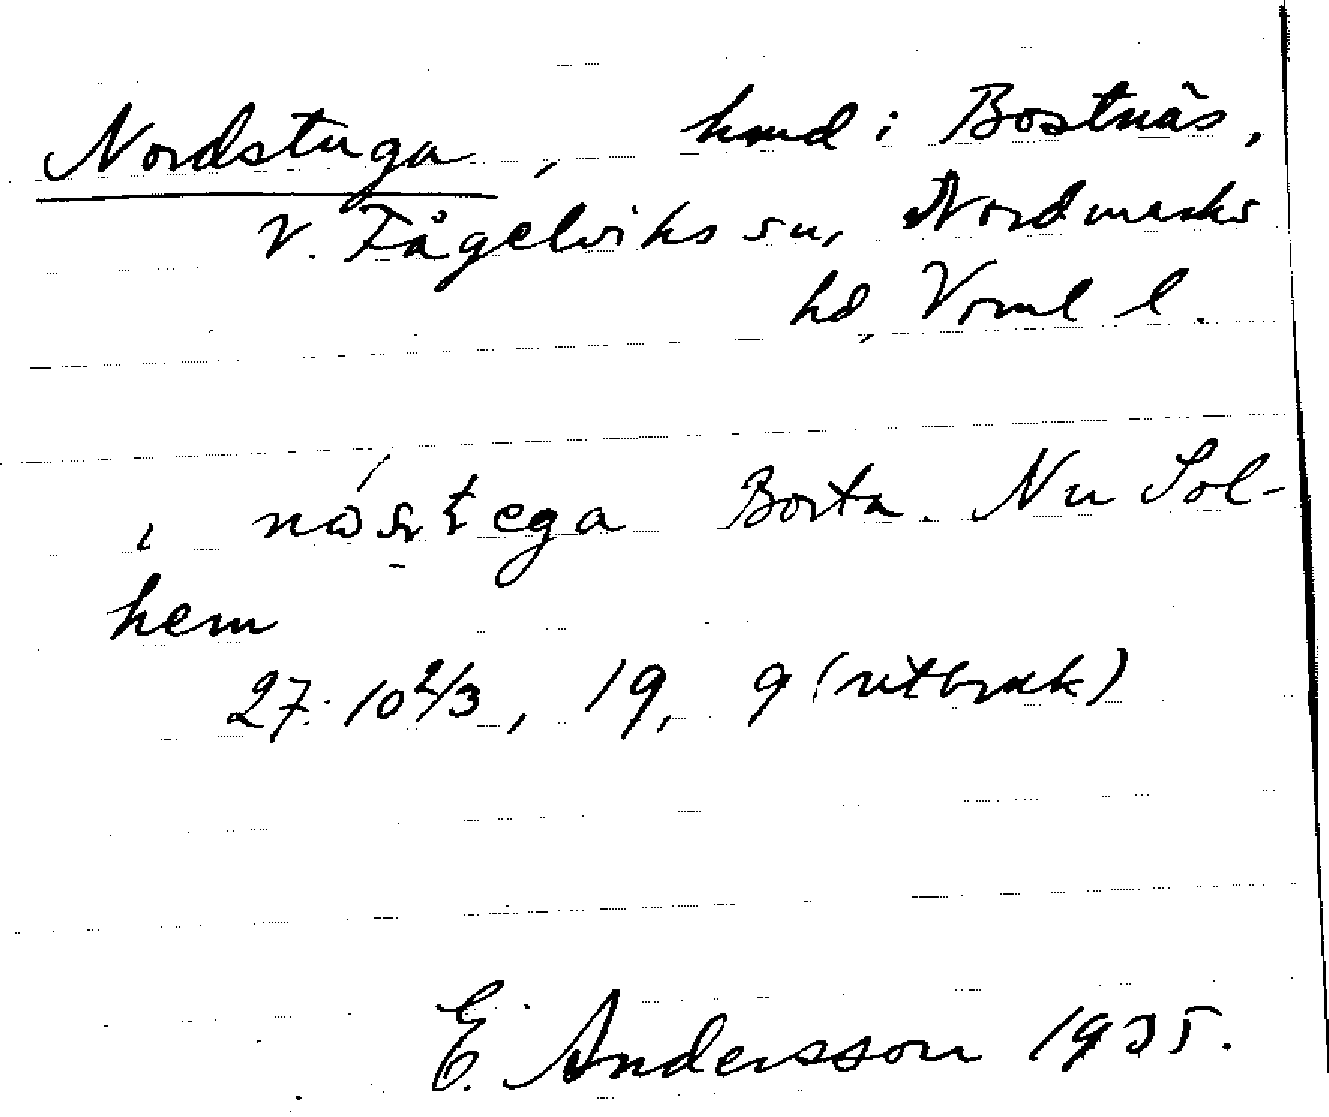 Nordstuga, hmd i Bostnäs,
V. Fågelviks sn, Nordmarks
hd, Vrml l.
i nástega Borta. Nu Sol-
hem
27. 10 2/3, 19, 9 (utbruk)
E. Andersson 1935.